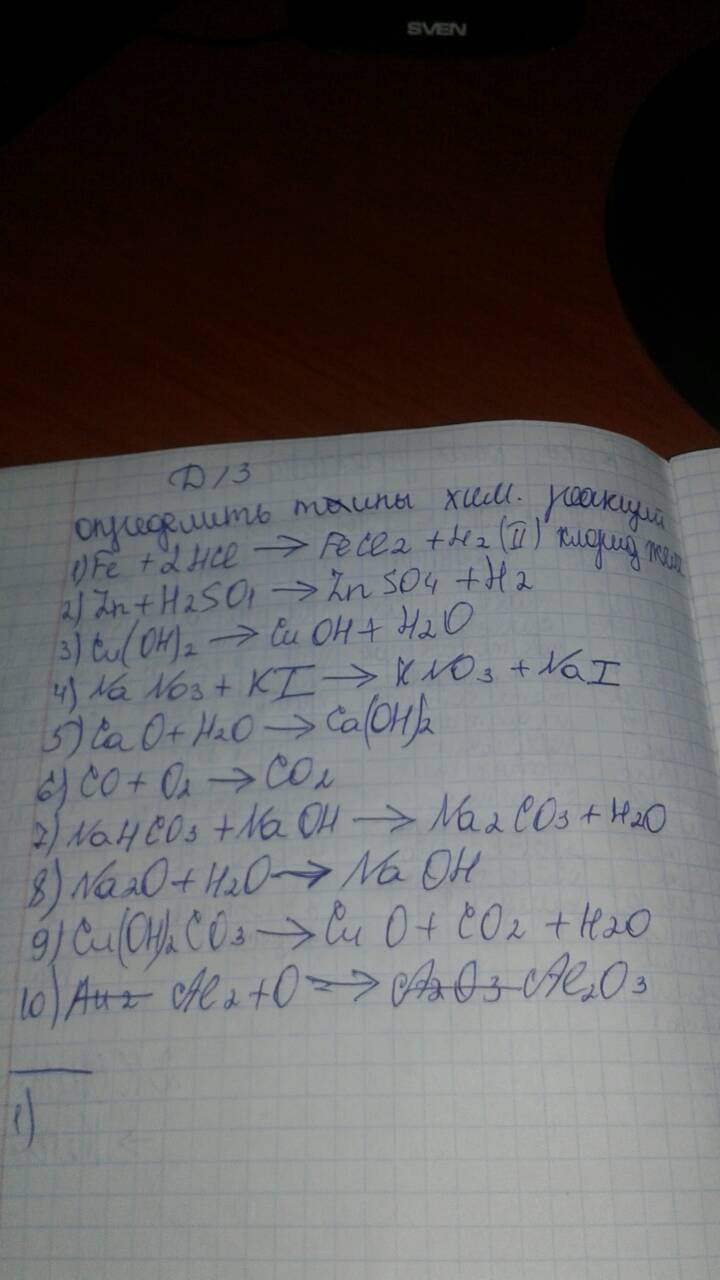 SVEN
Д/З
определить типы хим. реакций
1) Fe + 2HCl → FeCl2 + H2 (II) хлорид желе
2) Zn + H2SO4 → ZnSO4 + H2
3) Cu(OH)2 → CuOH + H2O
4) NaNo3 + KI → KNO3 + NaI
5) CaO + H2O → Ca(OH)2
6) CO + O2 → CO2
7) NaHCO3 + NaOH → Na2CO3 + H2O
8) Na2O + H2O → NaOH
9) Cu(OH)2CO3 → CuO + CO2 + H2O
10) Al2 + O → Al2O3
1)